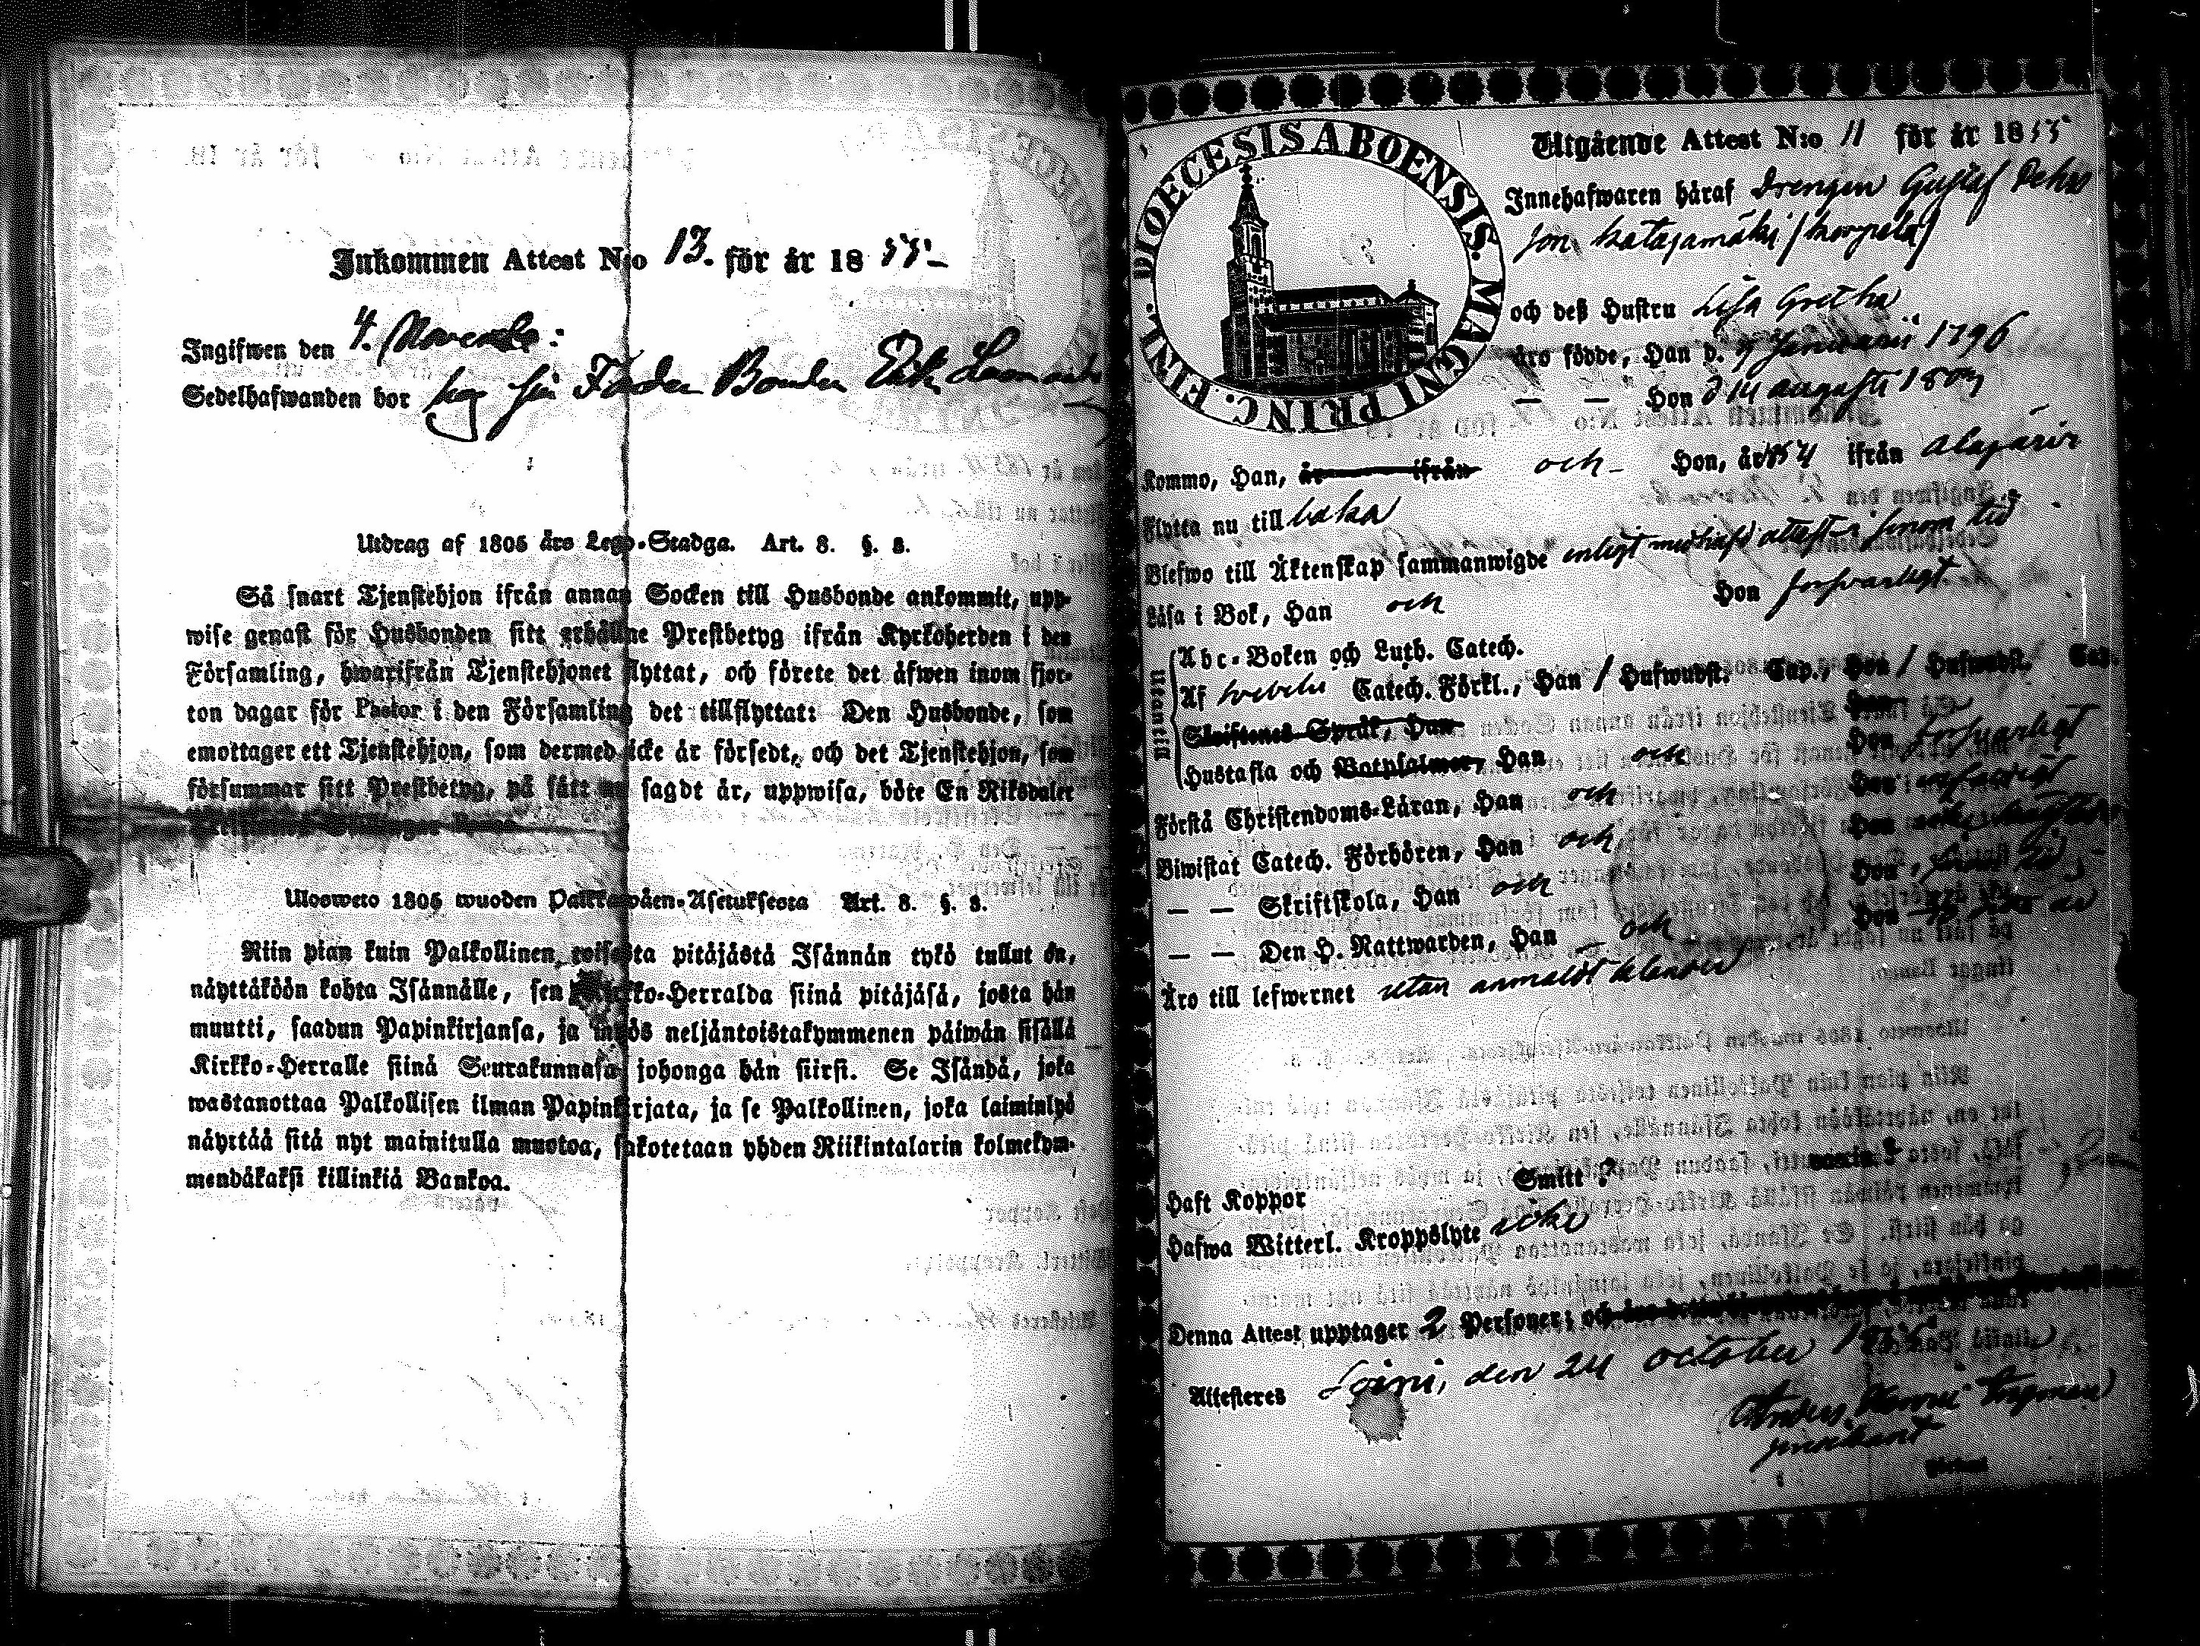 Inkommen Attest N:o 13. för år 1855-
Ingifwen den 4. Novemb:
Sedelhafwanden bor hos sin Fader Bonden Erik
Utdrag af 1805 års Lego-Stadga. Art. 8. §. 8.
Så snart Tjenstehjon ifrån annan Socken till Husbonde ankommit, upp-
wise genast för Husbonden sitt erhållne Prestbetyg ifrån Kyrkoherden i den
Församling, hwarifrån Tjenstehjonet flyttat, och förete det äfwen inom fjor-
ton dagar för Pastor i den Församling det tillflyttat: Den Husbonde, som
emottager ett Tjenstehjon, som dermed icke är försedt, och det Tjenstehjon, som
försummar sitt Prestbetyg, på sätt nu sagdt är, uppwisa, böte En Riksdaler
Ulosweto 1805 wuoden Palkkawäen-Asetuksesta Art. 8. §. 8.
Niin pian kuin Palkollinen toisesta pitäjästä Isännän tykö tullut on,
näyttäköön kohta Isännälle, sen Kirkko-Herralda siinä pitäjäsä, josta hän
muutti, saadun Papinkirjansa, ja myös neljäntoistakymmenen päiwän sisällä
Kirkko-Herralle siinä Seurakunnasa johonga hän siirsi. Se Isändä, joka
wastanottaa Palkollisen ilman Papinkirjata, ja se Palkollinen, joka laiminlyö
näyttää sitä nyt mainitulla muotoa, sakotetaan yhden Riikintalarin kolmekym-
mendäkaksi killinkiä Bankoa.
DIOECESIS ABOENSIS. MAGNI PRINC. FINL.
Utgående Attest N:o 11 för år 1855
Innehafwaren häraf Drengen Gustaf Pehrs
son Katajamäki /Korpela/
och deß Hustru Lisa Gretha
äro födde, Han d. 9 Januarii 1796
— — Hon d 14 augusti
Kommo, Han, år ifrån och - Hon, år 1854 ifrån Alajärvi
Flytta nu tillbaka
Blefwo till Äktenskap sammanwigde enligt medhafd attest i sinom tid
Läsa i Bok, Han och Hon försvarligt
Utantill
Abc-Boken och Luth. Catech.
Af Svebelii Catech. Förkl., Han / Hufwudst. Cap., Hon / Hufwudst. Cap.
Skriftenes Språk, Han Hon
Hustafla och Botpsalmer, Han och Hon försvarligt
Förstå Christendoms-Läran, Han och Hon
Biwistat Catech. Förhören, Han och Hon
— — Skriftskola, Han och Hon
— — Den H. Nattwarden, Han - och Hon
Äro till lefwernet utan anmäldt klander
Haft Koppor Smitt?
Hafwa Witterl. Kroppslyte icke
Denna Attest upptager 2 Personer; och
Attesteres Soini, den 24 october 1855
Anders